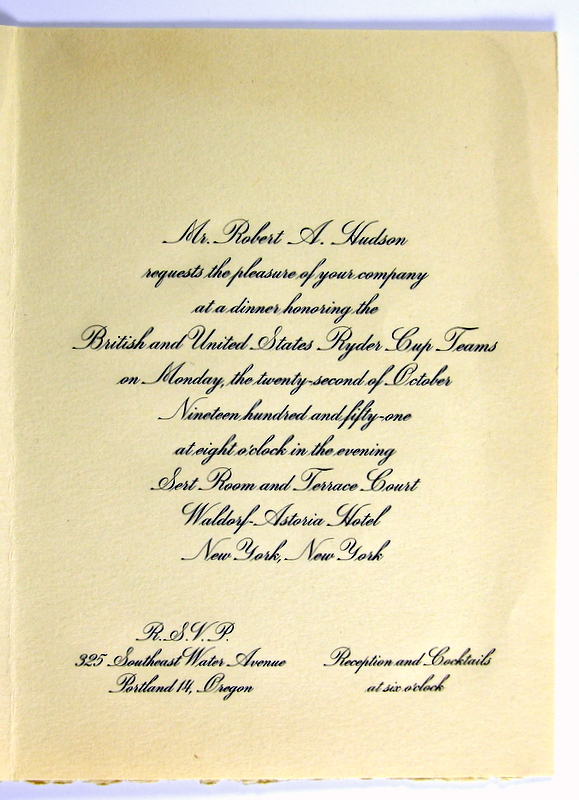 Mr. Robert A. Hudson
requests the pleasure of your company
at a dinner honoring the
British and United States Ryder Cup Teams
on Monday, the twenty-second of October
Nineteen hundred and fifty-one
at eight o'clock in the evening
Sert Room and Terrace Court
Waldorf-Astoria Hotel
New York, New York
R.S.V.P.
325 Southeast Water Avenue
Portland 14, Oregon
Reception and Cocktails
at six o'clock